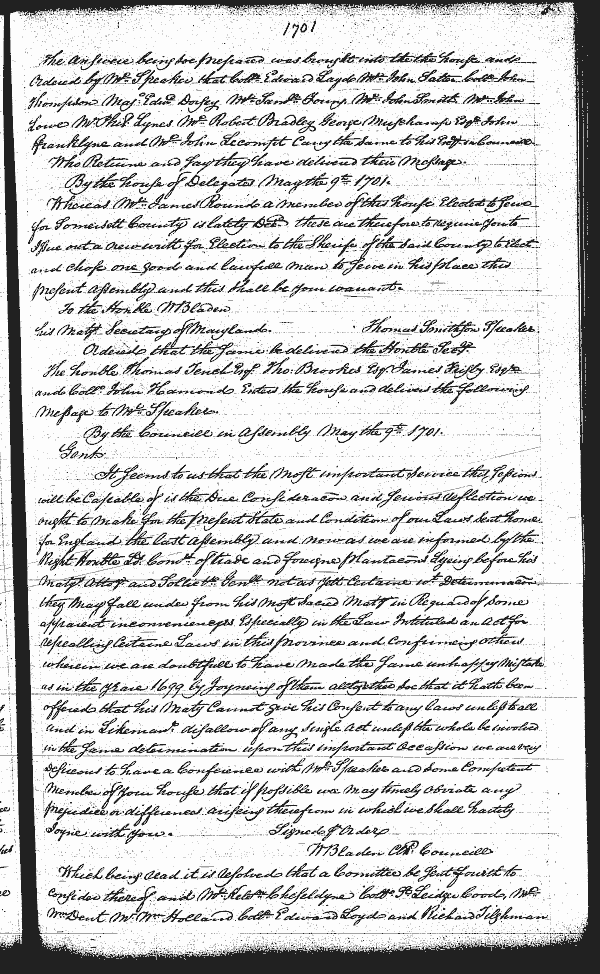 1701
The Answere being soe prepared was brought into the the house and
Ordered by Mr. Speaker that Collo. Edward Loyde Mr. John Salter Collo. John
Thompson Maj. Edwd. Dorsey Mr. Saml. Young Mr. John Smith Mr. John
Lowe Mr. Phil. Lynes Mr. Robert Bradley George Muschamp Esqr. John
Francklyne and Mr. John Lecompt Carry the Same to his Exy. in Councill
Who Returne and say they have delivered their Message.
By the house of Delegates May the 9th. 1701.
Whereas Mr. James Round a member of this house Elected to Serve
for Somersett County is lately Decd. these are therefore to require you to
Issue out a new writt for Election to the Sherife of the said County to Elect
and chose one good and lawfull man to Serve in his place this
present Assembly and this shall be your warrant.
To the Honble W Bladen
his Matys. Secretary of Maryland. Thomas Smithson Speaker.
Ordered that the Same be delivered the Honble Secy.
The honble Thomas Tench Esqr. Tho: Brooke Esqr. James Frisby Esqr.
and Collo. John Hamond Enters the house and delivers the following
Message to Mr. Speaker.
By the Councill in Assembly May the 9th. 1701.
Gent.
It Seems to us that the Most important Service this Sessions
will be Capeable of is the Due Consideracon and Serious reflection we
ought to make for the present State and Condition of our Laws Sent home
for England the last Assembly and now as we are informed by the
Right Honble Lds. Comrs. of trade and foreigne plantacons Lyeing before his
Matys. Attory. and Sollictr. Genll. not as yett Certaine wt. Determinacon
they May fall under from his Most Sacred Maty. in Reguard of Some
apparent inconvenienceys Especially in the Law Intituled an Act for
repealling Certaine Laws in this province and Confirmeing others
wherein we are doubtfull to have Made the Same unhappy Mistake
as in the yeare 1699 by Joyneing of them altogether soe that it hath been
offered that his Maty Cannot give his Consent to any laws unless to all
and in Likemanr. disallow of any single Act unless the whole be involved
in the Same determination upon this important Occassion we are very
desireous to have a Conference with Mr. Speaker and some Competent
Member of your house that if possible we may timely obviate any
prejudice or differences ariseing therefrom in which we Shall hartily
Joyne with you. Signed p Order
W Bladen Clk. Councill
Which being read it is resolved that a Comittee be Sent fourth to
Consider thereof and Mr. Kelm. Cheseldyne Collo. Jo. Leidger Cood, Mr.
Wm. Dent Mr. Wm. Holland Collo. Edward Loyd and Richard Tilghman